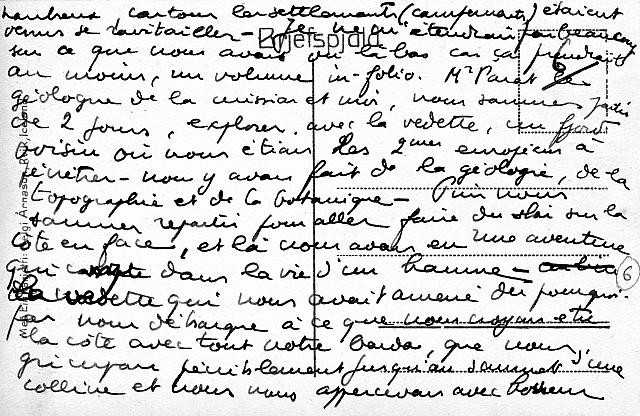 nombreux car tous les settlements (campements) étaient
venus se ravitailler – Je ne m'étendrai pas beaucoup
sur ce que nous avons vu là-bas car ça prendrait
au moins, un volume in-folio. Mr Parat le
géologue de la mission et moi, nous sommes partis
de 2 jours, explorer, avec la vedette, un fjord
voisin où nous étions les 2èmes européens à
pénétrer – nous y avons fait de la géologie, de la
topographie et de la botanique – Puis nous
sommes repartis pour aller faire du ski sur la
côte en face, et là nous avons eu une aventure
qui compte dans la vie d'un homme –
la vedette qui nous avait amené du pourquoi-
pas nous débarque à ce que nous croyons être
la côte avec tout notre barda, que nous
grimpons péniblement jusqu'au sommet d'une
colline et nous nous apercevons avec horreur
6
Bréfspjald
Helgi Árnason, Rvík, Iceland